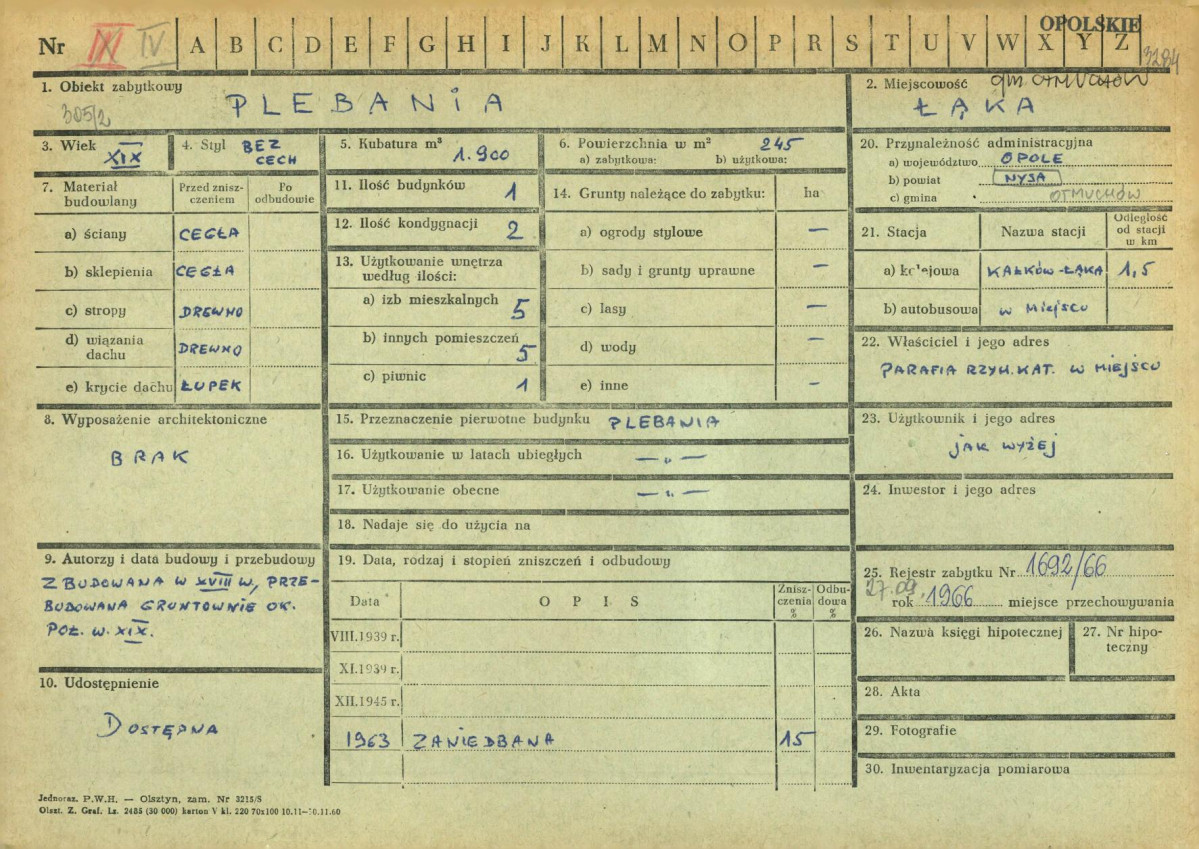 OPOLSKIE
Nr III IV A B C D E F G H I J K L M N O P R S T U V W X Y Z
3284
1. Obiekt zabytkowy
305/2
PLEBANIA
2. Miejscowość gm. OTMUCHÓW
ŁĄKA
3. Wiek XIX
4. Styl BEZ CECH
5. Kubatura m³ 1.900
6. Powierzchnia w m² 245
a) zabytkowa: b) użytkowa:
20. Przynależność administracyjna
a) województwo OPOLE
b) powiat NYSA
c) gmina OTMUCHÓW
7. Materiał budowlany
Przed zniszczeniem
Po odbudowie
a) ściany CEGŁA
b) sklepienia CEGŁA
c) stropy DREWNO
d) wiązania dachu DREWNO
e) krycie dachu ŁUPEK
11. Ilość budynków 1
12. Ilość kondygnacji 2
13. Użytkowanie wnętrza według ilości:
a) izb mieszkalnych 5
b) innych pomieszczeń 5
c) piwnic 1
14. Grunty należące do zabytku: ha
a) ogrody stylowe —
b) sady i grunty uprawne —
c) lasy —
d) wody —
e) inne —
21. Stacja
Nazwa stacji
Odległość od stacji w km
a) kolejowa KAŁKÓW-ŁĄKA 1,5
b) autobusowa w miejscu
22. Właściciel i jego adres
PARAFIA RZYM. KAT. W MIEJSCU
8. Wyposażenie architektoniczne
BRAK
15. Przeznaczenie pierwotne budynku PLEBANIA
16. Użytkowanie w latach ubiegłych — „ —
17. Użytkowanie obecne — „ —
18. Nadaje się do użycia na
23. Użytkownik i jego adres
jak wyżej
24. Inwestor i jego adres
9. Autorzy i data budowy i przebudowy
ZBUDOWANA W XVIII W, PRZE-
BUDOWANA GRUNTOWNIE OK.
POŁ. W. XIX.
19. Data, rodzaj i stopień zniszczeń i odbudowy
Data OPIS Zniszczenia % Odbudowa %
VIII.1939 r.
XI.1939 r.
XII.1945 r.
1963 ZANIEDBANA 15
25. Rejestr zabytku Nr 1692/66
27.09. rok 1966 miejsce przechowywania
26. Nazwa księgi hipotecznej
27. Nr hipoteczny
28. Akta
29. Fotografie
30. Inwentaryzacja pomiarowa
10. Udostępnienie
DOSTĘPNA
Jednoraz. P.W.H. — Olsztyn, zam. Nr 3215/S
Olszt. Z. Graf. Lz. 2485 (30 000) karton V kl. 220 70x100 10.11—10.11.60